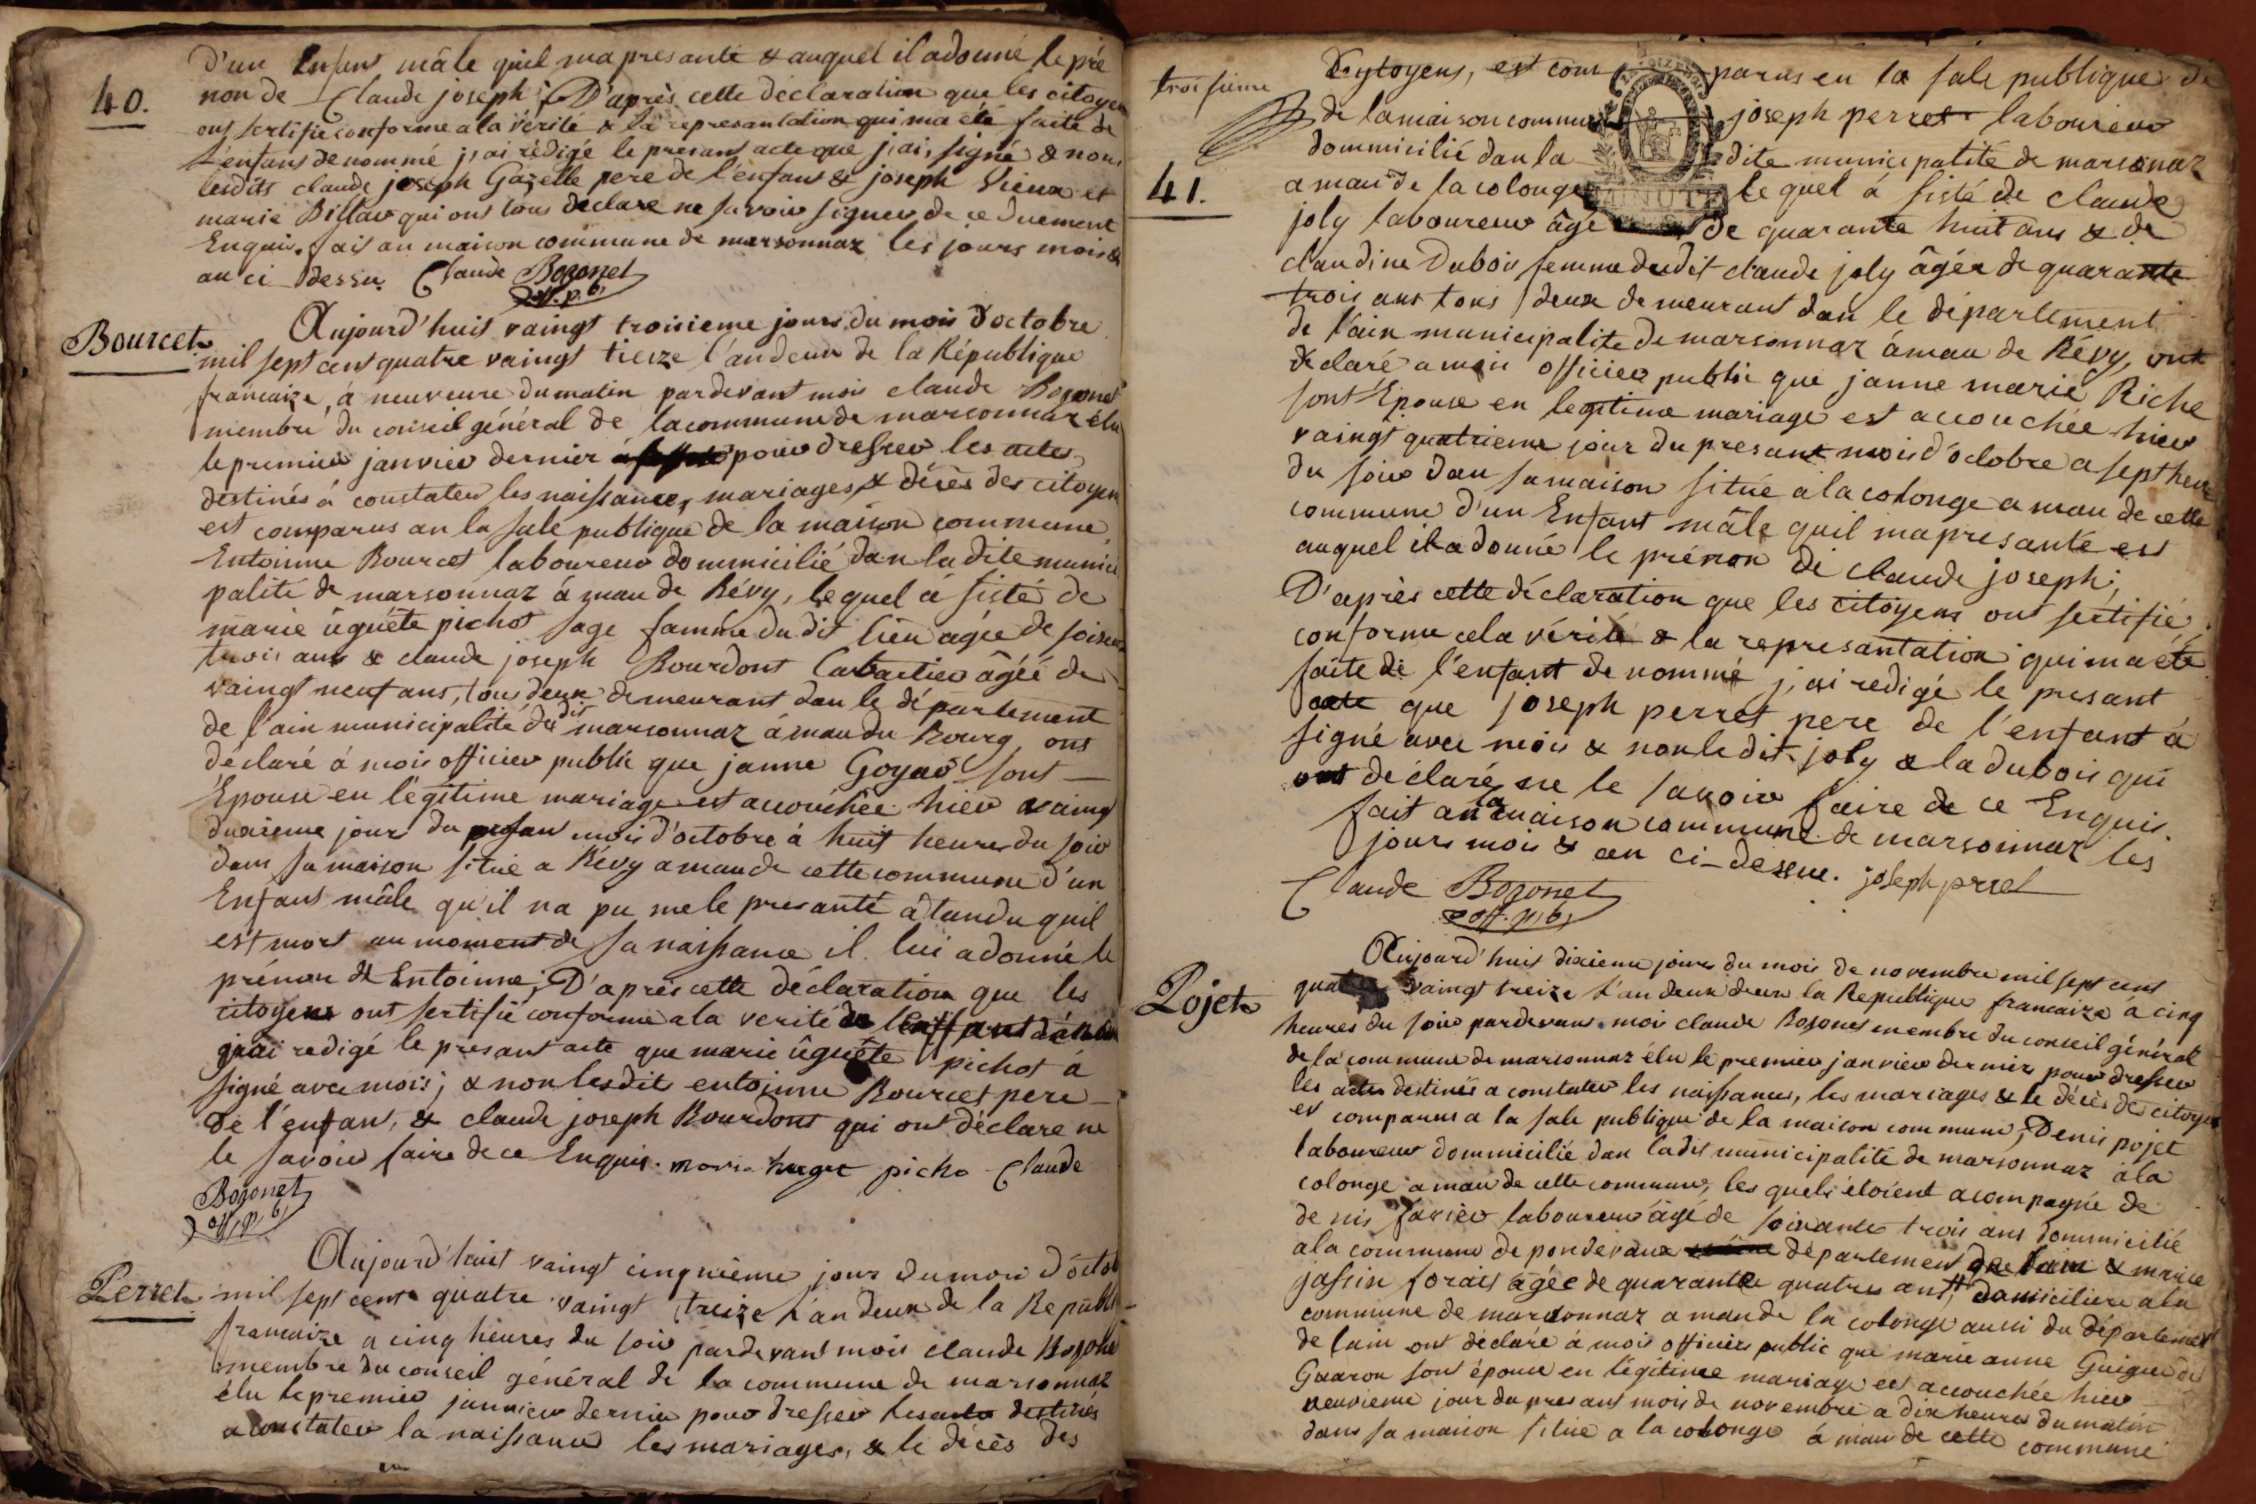 D'un Enfant mâle quil ma presanté & auquel il a donné le pré
40.
non de Claude joseph ; D'après cette déclaration que les citoyen
ont sertifie conforme a la vérité & la represantation qui ma été faite de
l'enfans denommé j'ai rédigé le presant acte que j'ai signé & non
lesdits claude joseph Gazelle pere de l'enfant & joseph Vieux et
marie Billau qui ont tous déclaré ne savoir signer de ce Duement
Enquis. fait au maison commune de marsonnaz les jours mois &
an ci dessu. Claude Bozonet
off. p. b,
Aujourd'huit vaingt troisieme jours du mois d'octobre
Bourcet
mil sept cent quatre vaingt tieize l'an deux de la République
francaize, à neuveure du matin pardevant mois claude Bozonet
membre du conseil général de la commune de marsonnaz élu
le premier janvier dernier pour dresser les actes
destinés à constater les naissances, mariages & décès des citoyen
est comparus an la sale publique de la maison commune
Entoinne Bourcet laboureur dommicilié dan la dite munici
palité de marsonnaz à mau de Révy, lequel à sisté de
marie ûguéte pichot sage famme du dit lieu agée de soisente
trois ans & claude joseph Bourdont Cabartier âgée de
vaingt neuf ans, tous deux demeurant dan le département
de l'ain municipalité du dit marsonnaz à mau du Bourg, ont
déclaré à mois officier public que janne Goyat sont
Epouse en légitime mariage est accouchée hier vaing
duxieme jour du presan mois d'octobre à huit heures du soir
dans sa maison situé a Révy a mau de cette commune d'un
Enfant mâle qu'il na pu me le presanté atandu quil
est mort au moment de sa naissance il lui a donné le
prénon de Entoinne ; D'après cette déclaration que les
citoyens ont sertifié conforme a la verité
j'ai redigé le presant acte que marie ûguéte pichot à
signé avec mois ; & non lesdit entoinne Bourcet pere
de l'enfant, & claude joseph Bourdont qui ont déclare ne
le savoir faire de ce Enquis. marie huget picho Claude
Bozonet
off, p, b,
Aujourd'huit vaingt cinquieme jour du mois d'octob
Perret
mil sept cent quatre vaingt treize l'an deux de la Républi
francaize a cinq heures du soir pardevant mois claude Bozone
membre du conseil général de la commune de marsonnaz
élu le premier janvier dernier pour dresser les acte destinés
a constater la naissance les mariages, & le décès des
troisieme
Cytoyens, est com parus en la sale publique de
de la maison commune joseph perret laboureur
dommicilié dan la dite municipalité de marsonnaz
41.
a mau de la colonge le quel à sisté de claude
joly laboureur âgé de quarante huit ans & de
claudine Dubois femme dudit claude joly âgée de quarante
trois ans tous deux demeurant dan le département
de l'ain municipalite de marsonnaz à mau de Révy, ont
déclaré a moi officier public que janne marie Riche
sont Epouse en legitime mariage est accouchée hier
vaingt quatrieme jour du presant mois d'octobre a sept heur
du soir dan sa maison situé a la colonge a mau de cette
commune d'un Enfant mâle quil ma presanté est
auquel il a donné le prénon de claude joseph ;
D'après cette déclaration que les citoyens ont sertifié
conforme a la vérité & la represantation qui ma été
faite de l'enfant de nommé j'ai redigé le presant
acte que joseph perret pere de l'enfant à
signé avec mois & non ledit joly & la dubois qui
ont déclaré ne le savoir faire de ce Enquis.
fait an la maison commune de marsonnaz les
jours mois & an ci-dessue. joseph prret
Claude Bozonet
off. p, b,
Aujourd'huit dixieme jours du mois de novembre mil sept cent
Pojet
quatre vaingt treize l'an deux deux la Republique francaize à cinq
heures du soir pardevans mois claude Bozonet membre du conseil général
de la commune de marsonnaz élu le premier janvier dernier pour dresser
les actes destinés a constater les naissances, les mariages & le décès des citoyen
et comparus a la sale publique de la maison commune, Denis pojet
laboureur dommicilié dan la dit municipalité de marsonnaz à la
colonge a mau de cette commune, les quels étoient acompagné de
de nis favier laboureur âgé de soixante trois ans dommicilié
a la commune de pondevaux département de lain & marie
jassin forais âgée de quarante quatres ans, domiciliere a la
commune de marsonnaz a mau de la colonge aussi du département
de lain ont déclaré à mois officiers public que marie anne Guigue de
Guaron sont épouse en légitimee mariage est accouchée hier
neuvieme jour du presant mois de novembre a dix heures du matin
dans sa maison situé a la colonge à mau de cette commune